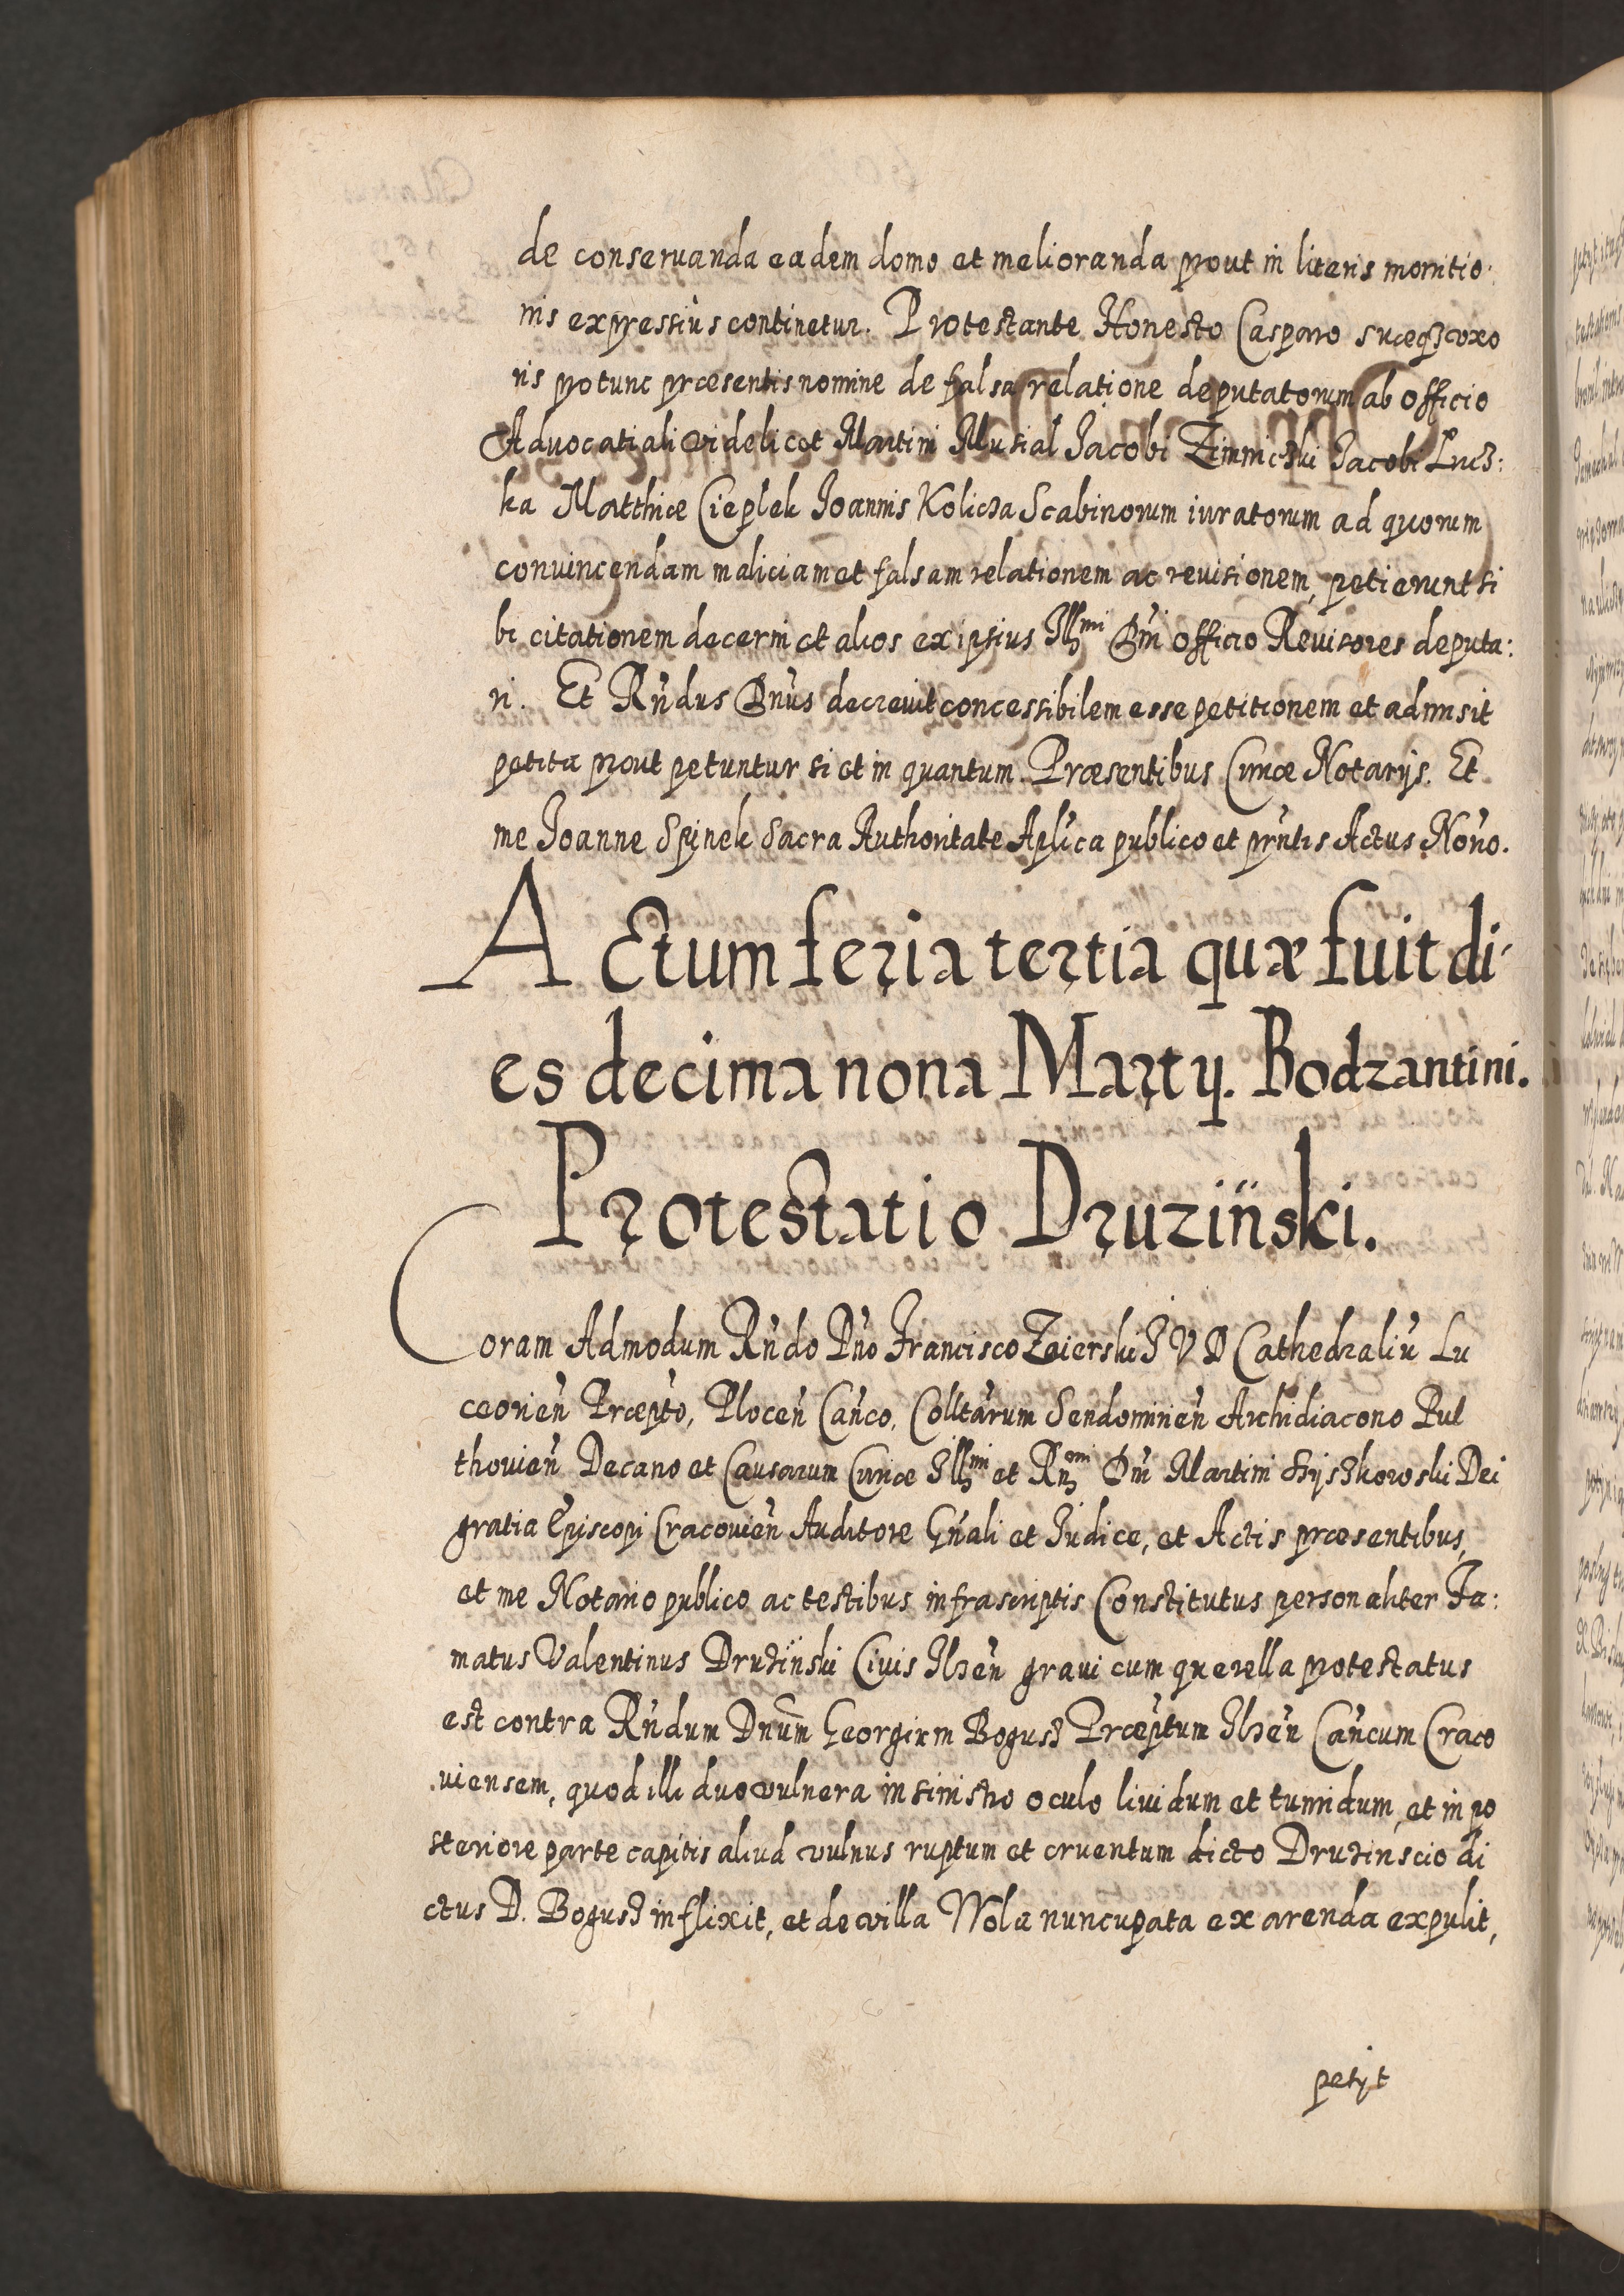 de conseruanda eadem domo et melioranda prout in literis monitio:
nis expressius continetur. Protestante Honesto Casparo suoeqꝫ uxo
ris pro tunc præsentis nomine de falsa relatione deputatorum ab officio
Aduocatiali videlicet Martini Musial Jacobi Zimniczki Jacobi Lucz:
ka Matthiæ Cieplek Joannis Kolicza Scabinorum iuratorum ad quorum
conuincendam maliciam et falsam relationem ac reuisionem, petierunt si
bi citationem decerni et alios ex ipsius Illmi Dñi officio Reuisores deputa:
ri. Et Rñdus Dnus decreuit concessibilem esse petitionem et admisit
petita prout petuntur si et in quantum. Præsentibus Curiæ Notarijs. Et
me Joanne Spinek Sacra Authoritate Aplica publico et prñtis Actus Noño.
Actum feria tertia quæ fuit di-
es decima nona Martij. Bodzantini.
Protestatio Druzinski.
Coram Admodum Rñdo Dño Francisco Zaierski J V D Cathedraliũ Lu
ceorieñ Præpto, Plocen̄ Canco, Colltarum Sendomirien̄ Archidiacono Pul
thouien̄ Decano et Causarum Curiæ Illmi et Rmi Dñi Martini Szyszkowski Dei
gratia Episcopi Cracouien̄ Auditore Gñali et Judice, et Actis præsentibus,
et me Notario publico ac testibus infrascriptis Constitutus personaliter Fa:
matus Valentinus Druzinski Ciuis Ilzen̄ graui cum querella protestatus
est contra Rñdum Dnum Georgium Bogusz Præptum Ilzen̄ Cancum Craco
uiensem, quod illi duo vulnera in sinistro oculo liuidum et tumidum, et in po
steriore parte capitis aliud vulnus ruptum et cruentum dicto Druzinscio di
ctus D. Bogusz inflixit, et de villa Wola nuncupata ex arenda expulit,
petijt